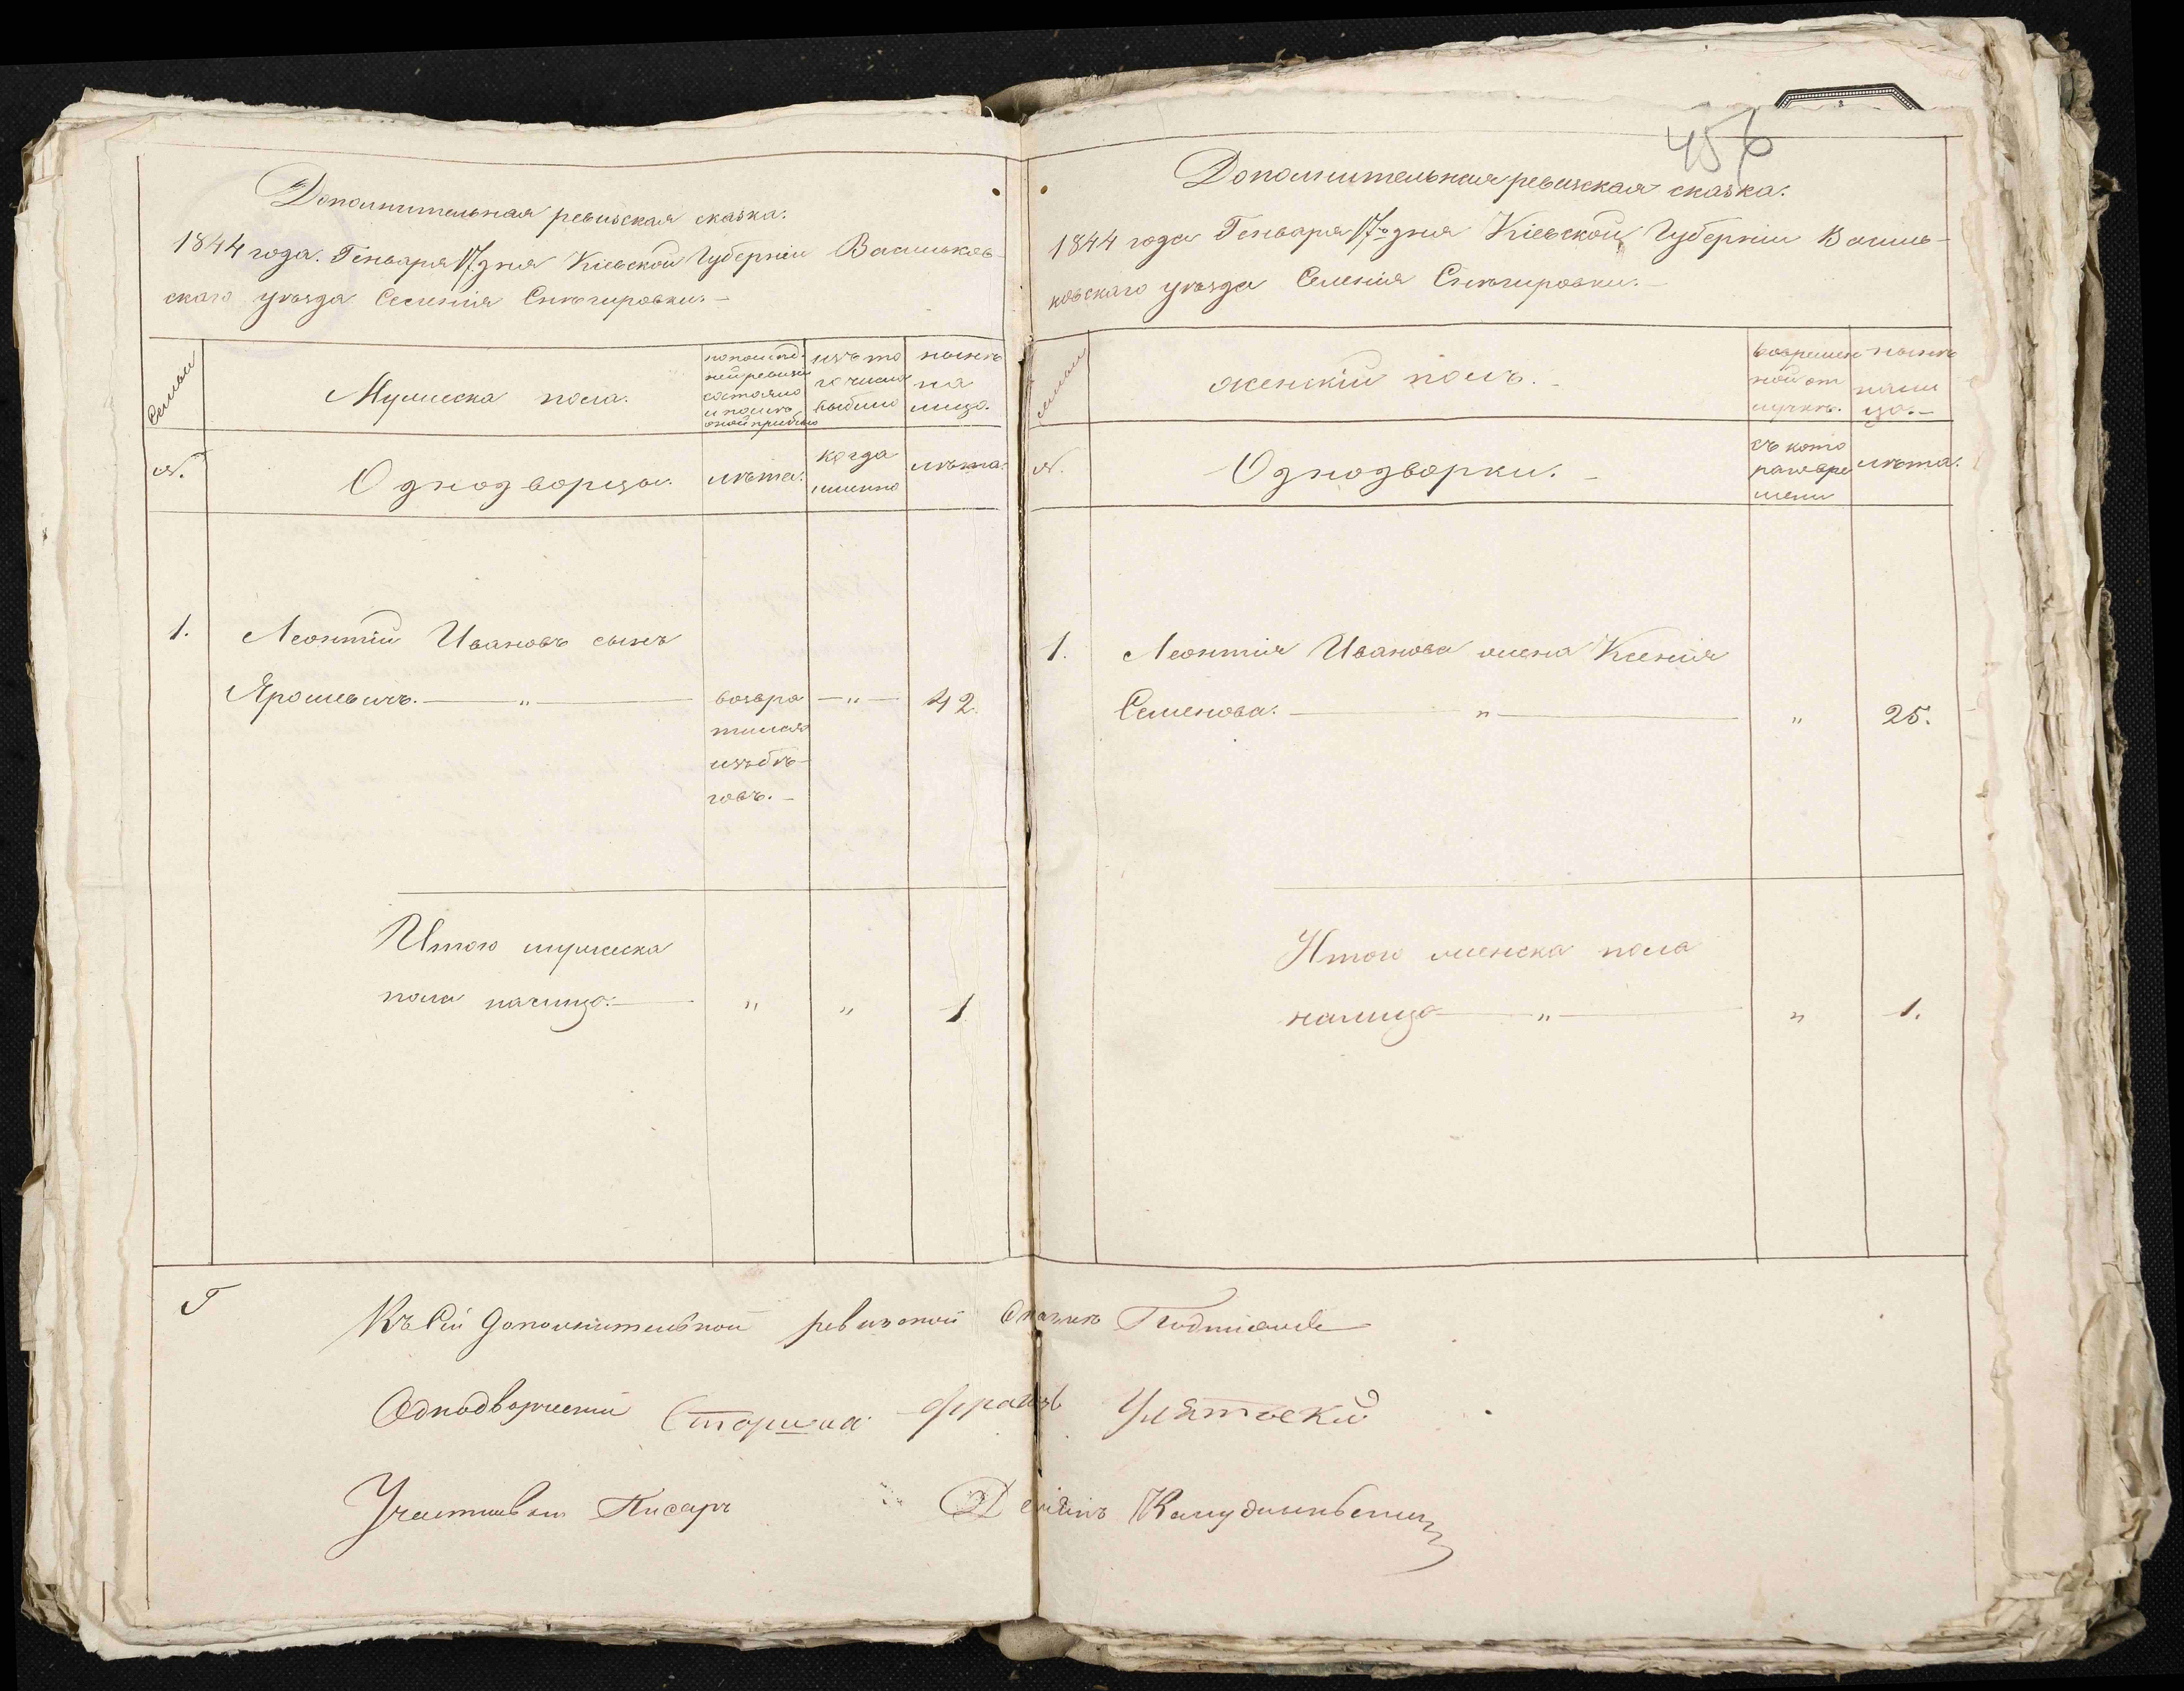 Дополнительная ревизская сказка.
1844 года. Генваря 17 дня Кіевской Губерніи Васильков-
скаго уѣзда Селенія Снѣгировки.
Семьи
Мужеска пола.
по послѣд-
ней ревизіи
состояло
и послѣ
оной прибыло
изъ то
го числа
выбыло
нынѣ
на
лицо.
№.
Однодворцы.
лѣта.
когда
именно
лѣта.
1.
Леонтій Ивановъ сынъ
Ярошевичъ. — „ —
возвра
тился
изъ бѣ-
говъ.
— „ —
42.
Итого мужеска
пола налицо. —
„
„
1
456
Дополнительная ревизская сказка.
1844 года Генваря 17го дня Кіевской Губерніи Василь-
ковскаго уѣзда Селенія Снѣгировки.
Семьи
женскій полъ.
во времен
ной от
лучкѣ.
нынѣ
нали
цо.
№.
Однодворки.
съ кото
раго вре
мени
лѣта.
1.
Леонтія Иванова жена Ксенія
Семенова. — „ —
„
25.
Итого женска пола
налицо — „ —
„
1.
Къ сей дополнительной ревизской сказке
Однодворческій Старшина Францъ
Писарь Деміянъ